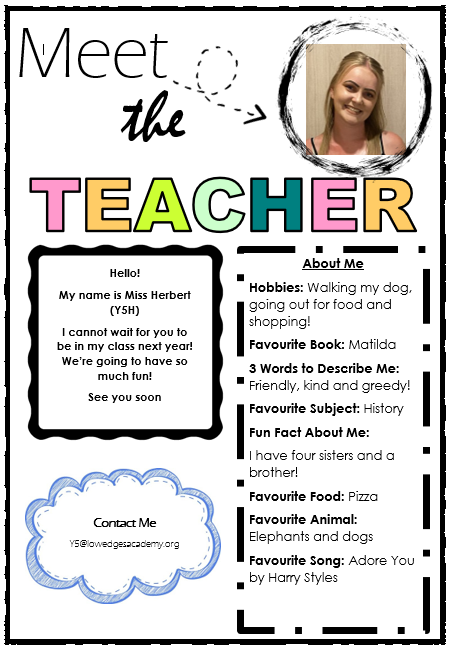 Meet
the
TEACHER
Hello!
My name is Miss Herbert
(Y5H)
I cannot wait for you to
be in my class next year!
We're going to have so
much fun!
See you soon
Contact Me
Y5@lowedgesacademy.org
About Me
Hobbies: Walking my dog,
going out for food and
shopping!
Favourite Book: Matilda
3 Words to Describe Me:
Friendly, kind and greedy!
Favourite Subject: History
Fun Fact About Me:
I have four sisters and a
brother!
Favourite Food: Pizza
Favourite Animal:
Elephants and dogs
Favourite Song: Adore You
by Harry Styles